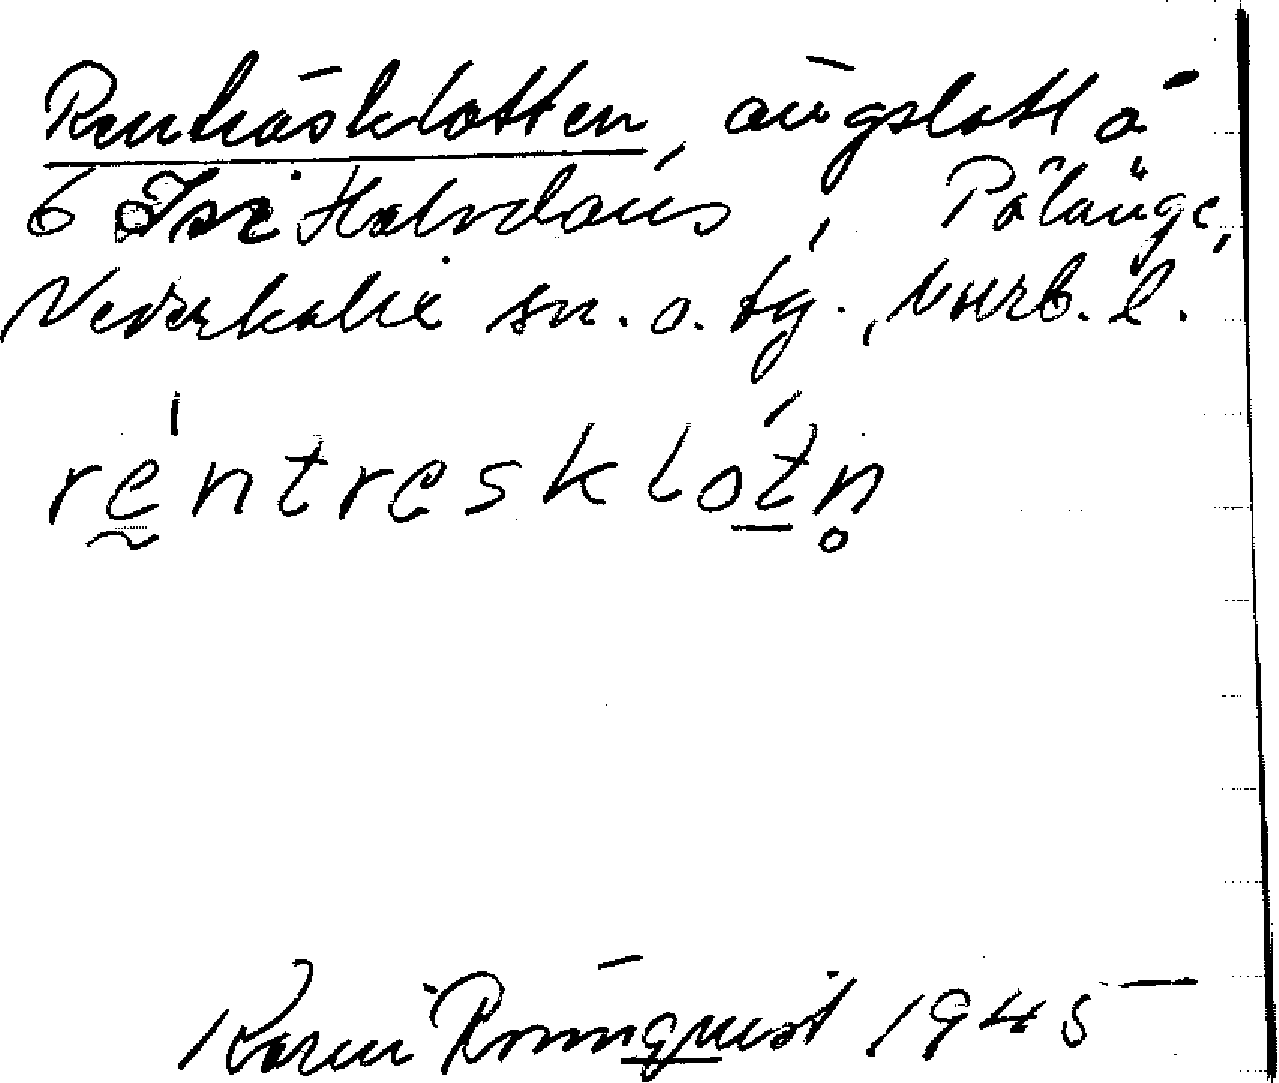 Renträsklotten, ängslott å
6 Halvdans, Pålänge,
Nederkalix sn. o. tg., Norrb. l.
rentresklotn
Karin Rönnquist 1945